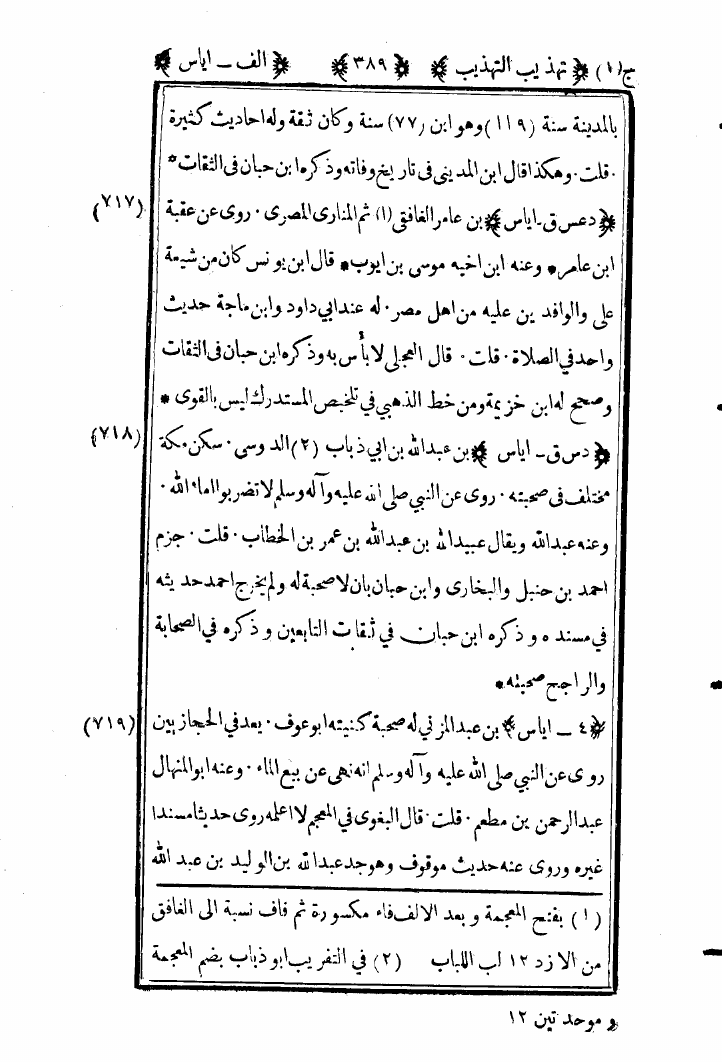 ج (١) ﴿ تهذيب التهذيب ﴾ ﴿ ٣٨٩ ﴾ ﴿ الف ـ اياس ﴾
بالمدينة سنة (١١٩) وهو ابن (٧٧) سنة وكان ثقة وله احاديث كثيرة
٠ قلت ٠ وهكذا قال ابن المديني في تاريخ وفاته وذكره ابن حبان في الثقات *
﴿ دعس ق ـ اياس ﴾ بن عامر الغافقي (١) ثم المناري المصري ٠ روى عن عقبة (٧١٧)
ابن عامر * وعنه ابن اخيه موسى بن ايوب * قال ابن يونس كان من شيعة
على والوافدين عليه من اهل مصر ٠ له عند ابي داود وابن ماجة حديث
واحد في الصلاة ٠ قلت ٠ قال العجلي لا بأس به وذكره ابن حبان في الثقات
وصحح له ابن خزيمة ومن خط الذهبي في تلخيص المستدرك ليس بالقوى *
﴿ دس ق ـ اياس ﴾ بن عبدالله بن ابي ذباب (٢) الدوسي ٠ سكن مكة (٧١٨)
مختلف في صحبته ٠ روى عن النبي صلى الله عليه وآله وسلم لا تضربوا اماء الله ٠
وعنه عبدالله ويقال عبيدالله بن عبدالله بن عمر بن الخطاب ٠ قلت ٠ جزم
احمد بن حنبل والبخارى وابن حبان بان لا صحبة له ولم يخرج احمد حديثه
في مسنده وذكره ابن حبان في ثقات التابعين وذكره في الصحابة
والراجح صحبته *
﴿ ٤ ـ اياس ﴾ بن عبد المزني له صحبة كنيته ابوعوف ٠ يعد في الحجازيين (٧١٩)
روى عن النبي صلى الله عليه وآله وسلم انه نهى عن بيع الماء ٠ وعنه ابو المنهال
عبد الرحمن بن مطعم ٠ قلت ٠ قال البغوى في المعجم لا اعلمه روى حديثا مسندا
غيره وروى عنه حديث موقوف وهو جد عبدالله بن الوليد بن عبد الله
(١) بفتح المعجمة وبعد الالف فاء مكسورة ثم قاف نسبة الى الغافق
من الازد ١٢ لب اللباب (٢) في التقريب ابو ذباب بضم المعجمة
و موحدتين ١٢